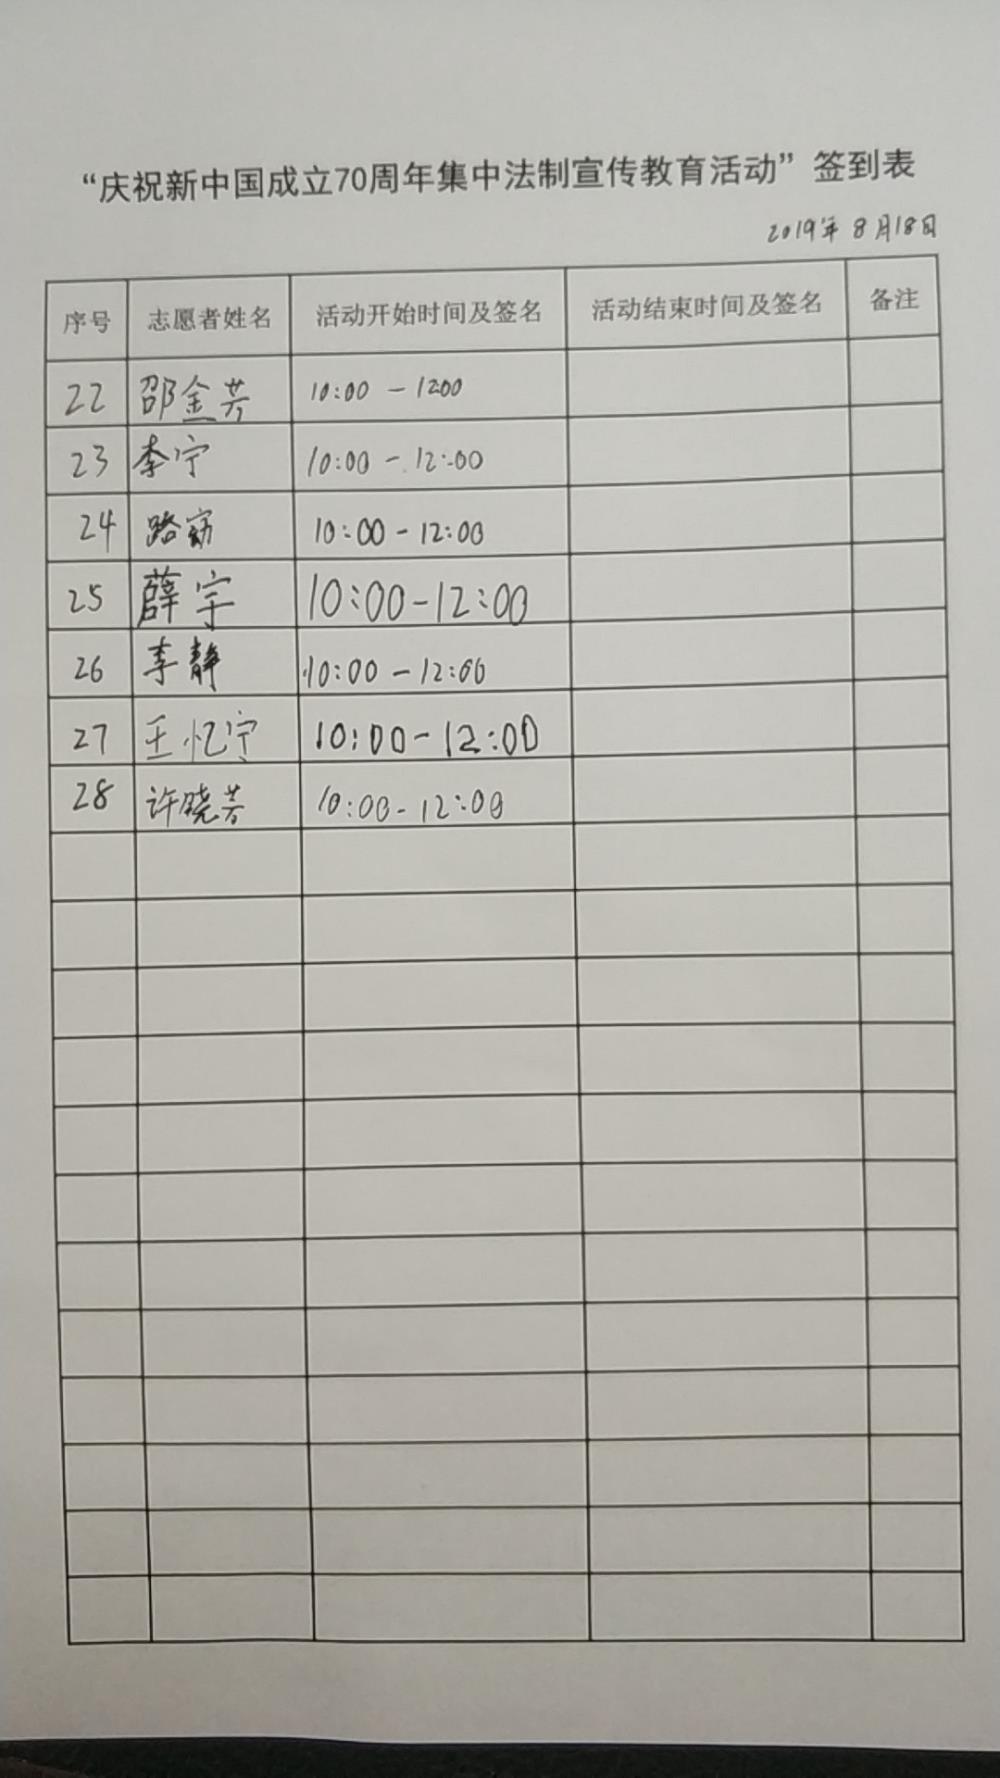 “庆祝新中国成立70周年集中法制宣传教育活动”签到表
2019年8月18日
序号 志愿者姓名 活动开始时间及签名 活动结束时间及签名 备注
22 邵金芳 10:00 - 1200
23 李宁 10:00 - 12:00
24 路 10:00 - 12:00
25 薛宇 10:00 - 12:00
26 李静 10:00 - 12:00
27 王忆宁 10:00 - 12:00
28 许晓芳 10:00 - 12:00